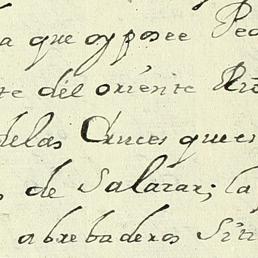 a que oy posee Ped
te del oriente Rio
delas Cruces que es
de Salazar; la
abrebaderos Sin